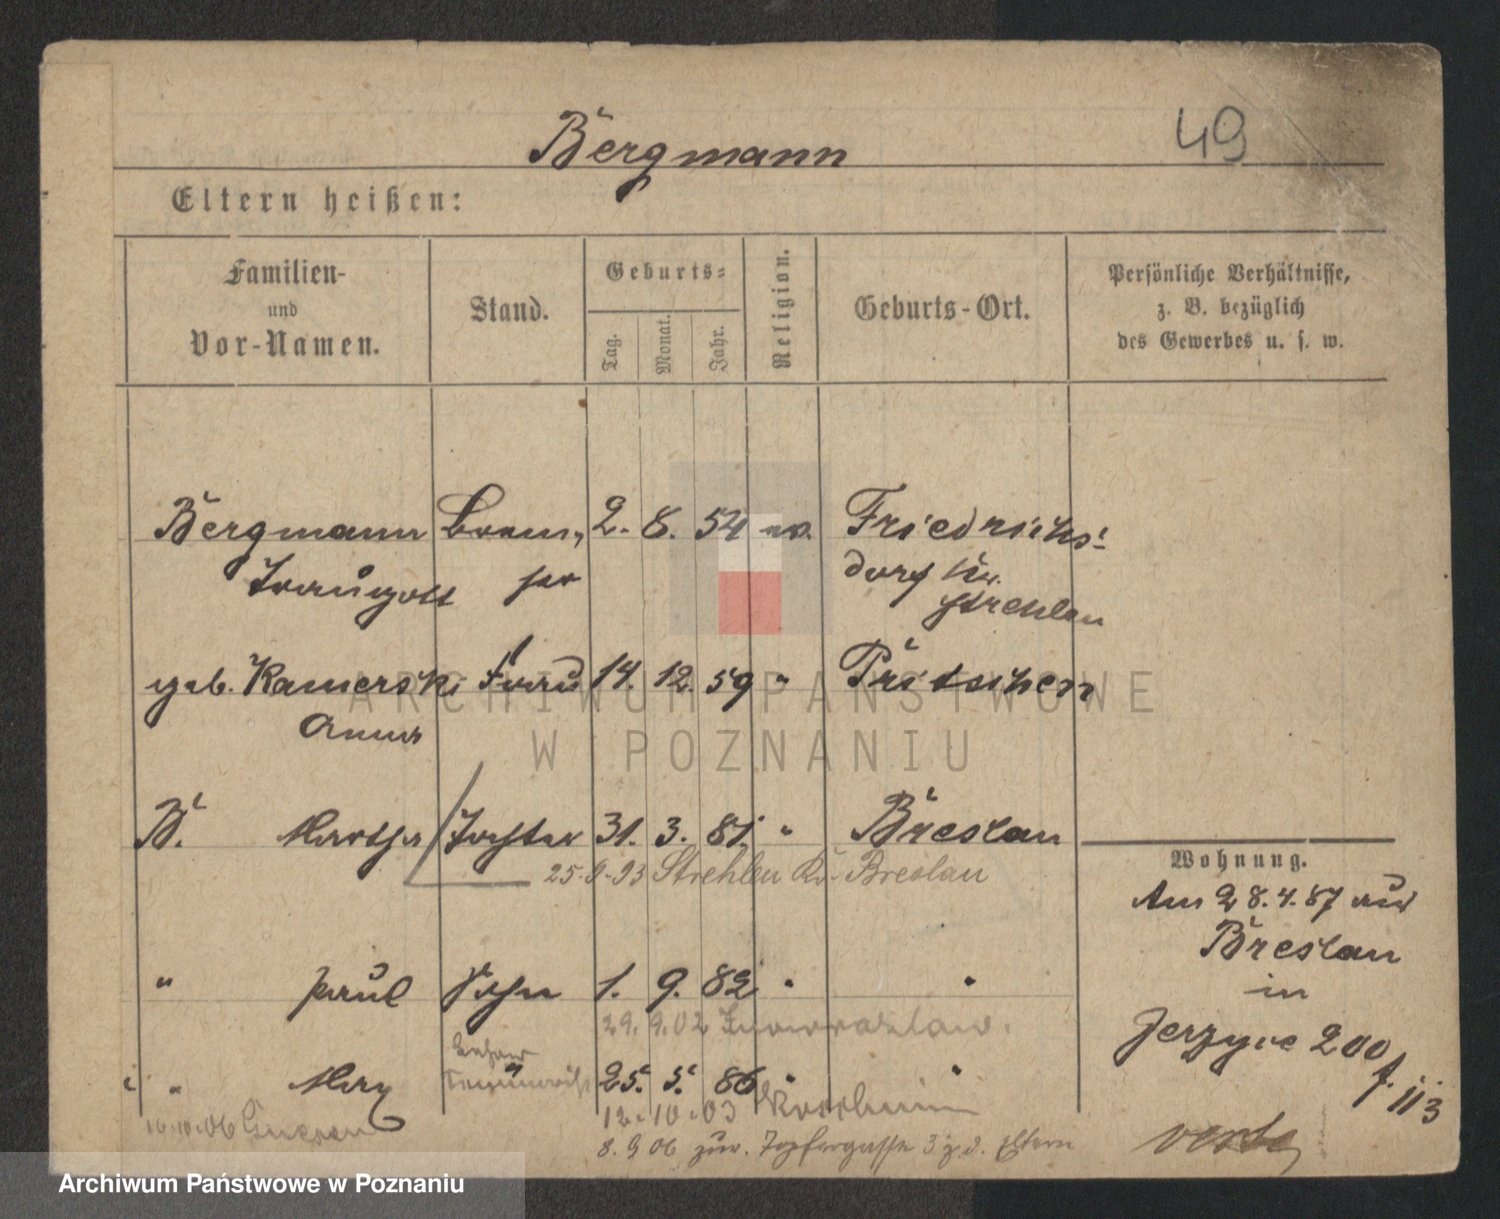 Bergmann
49
Eltern heißen:
Familien-
und
Vor-Namen.
Stand.
Geburts-
Tag.
Monat.
Jahr.
Religion.
Geburts-Ort.
Persönliche Verhältnisse,
z. B. bezüglich
des Gewerbes u. s. w.
Bergmann Brem- 2. 8. 54 ev. Friedrichs-
Traugott ser dorf Kr.
Strehlen
geb. Kamerski Frau 14. 12. 59 " Pritschen
Anna
B. Martha Tochter 31. 3. 81. " Breslau
25.9.93 Strehlen Kr. Breslau
Wohnung.
Am 28.4.87 aus
Breslau
in
Jerzyce 200
f. 113
" Paul Sohn 1. 9. 82 " "
29.9.02 Inowrazlaw.
" Max 25. 5. 86 " "
12.10.03
10.10.06 Gnesen
8.9.06 zur. Topfergasse 3 z. d. Eltern
verte
ARCHIWUM PAŃSTWOWE
W POZNANIU
Archiwum Państwowe w Poznaniu